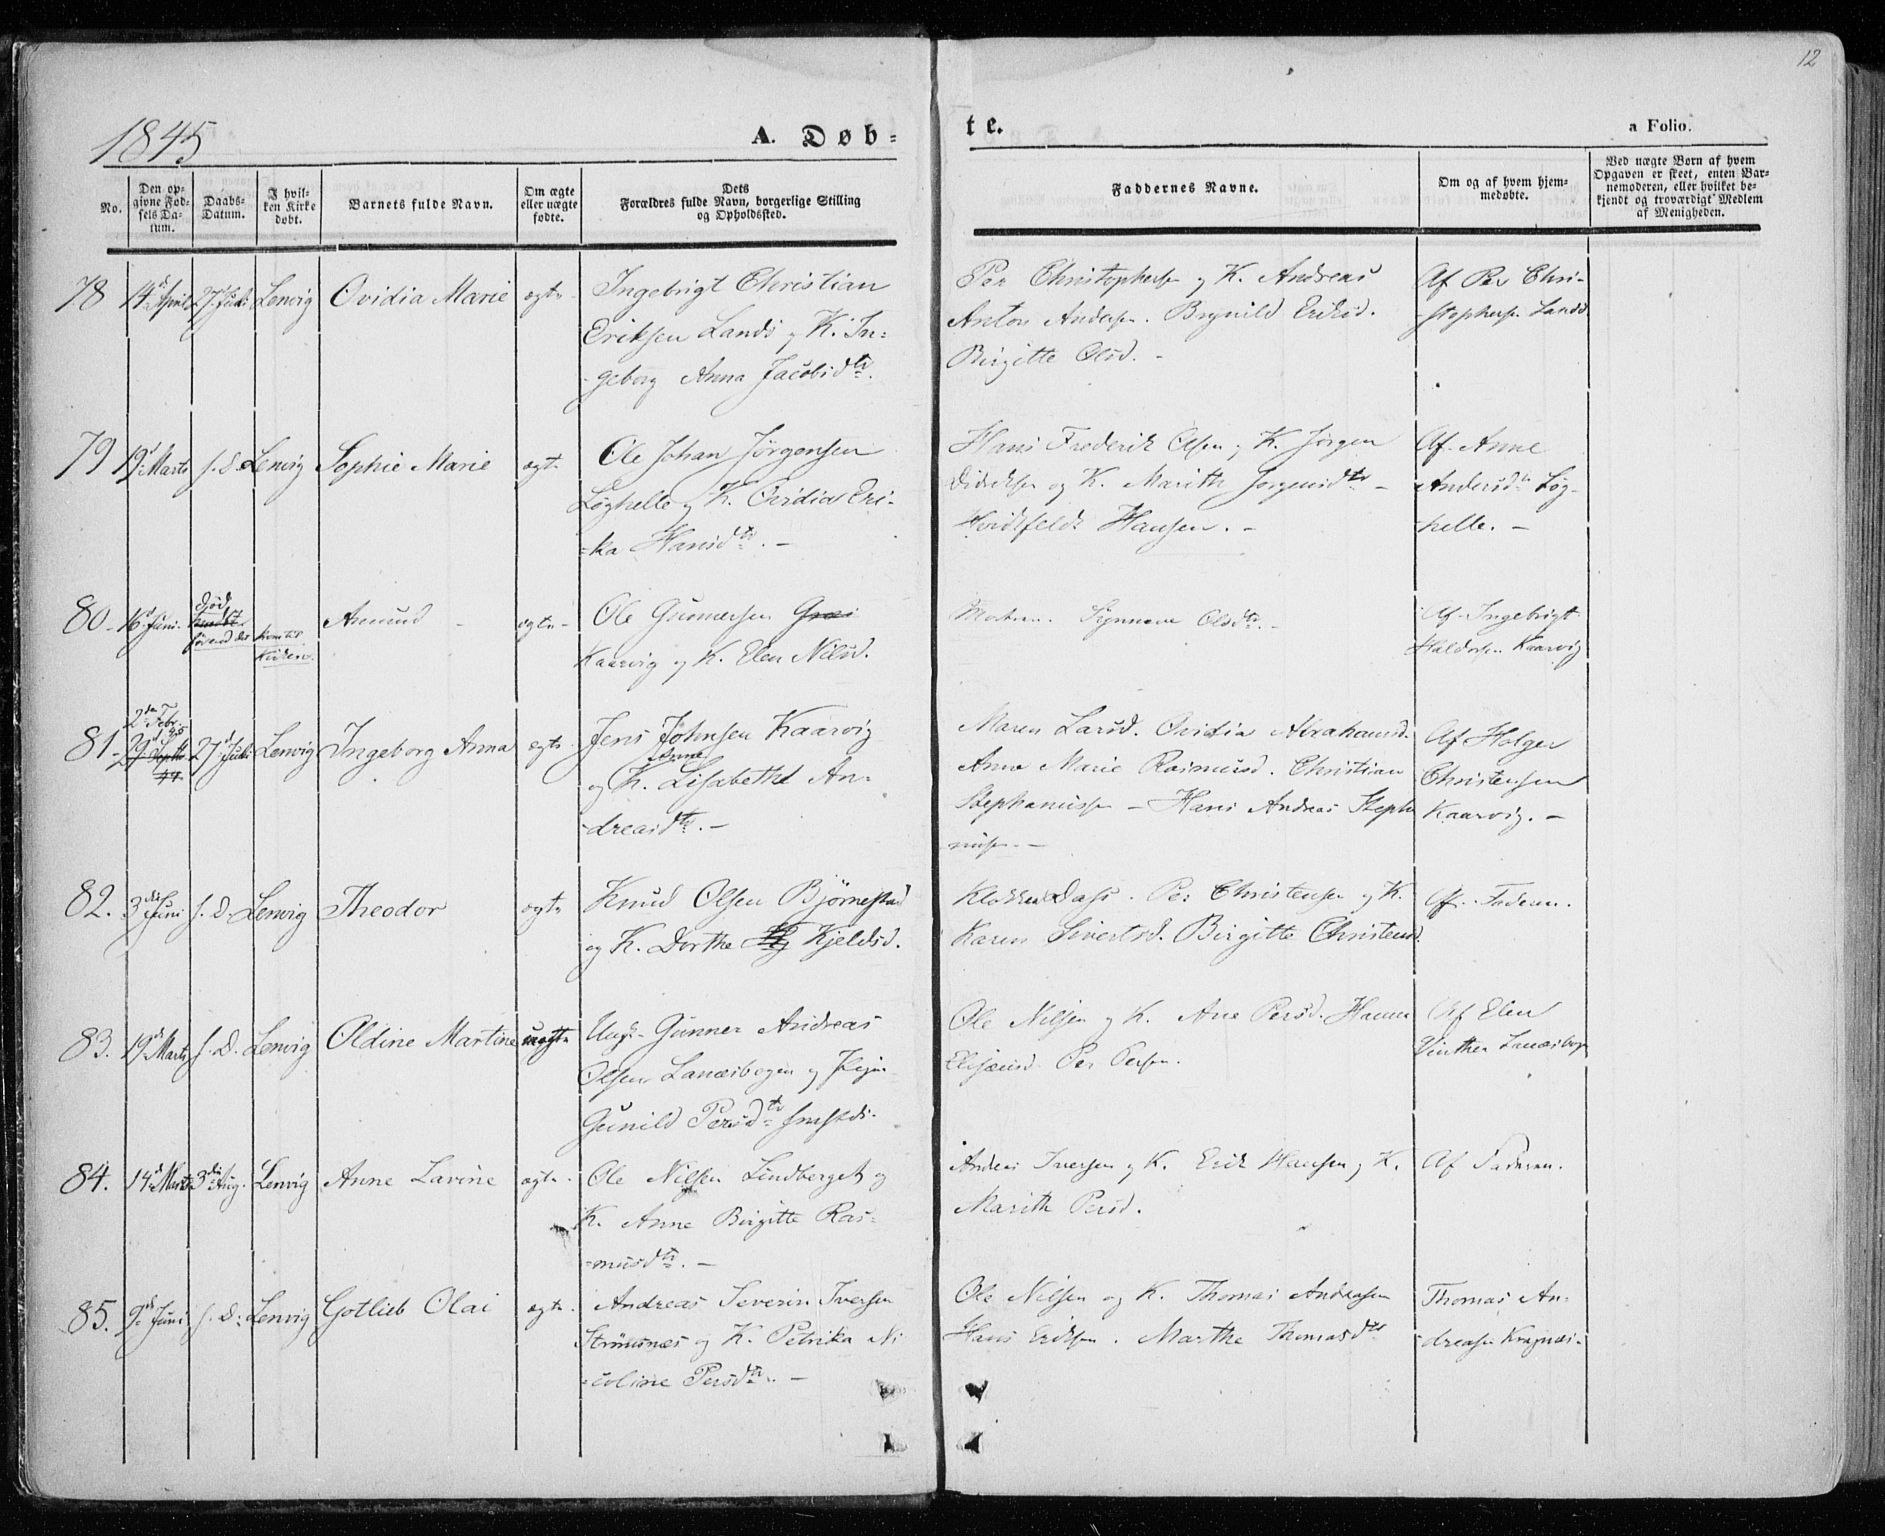 12
1845
A. Døb=
te.
a Folio.
No.
Den op-
givne Fød-
sels Da-
tum.
Daabs-
Datum.
I hvil-
ken Kirke
døbt.
Barnets fulde Navn.
Om ægte
eller uægte
fødte.
Dets
Forældres fulde Navn, borgerlige Stilling
og Opholdssted.
Faddernes Navne.
Om og af hvem hjem-
medøbte.
Ved uægte Børn af hvem
Opgaven er skeet, enten Bar-
nemoderen, eller hvilket be-
kjendt og troværdigt Medlem
af Menigheden.
78 14d April 27d Juli Lenvig Ovidia Marie ægte
Ingebrigt Christian
Eriksen Lands og K. In=
geborg Anna Jacobsdtr.
Per Christophersen og K. Andreas
Anton Andersen. Brynild Eriksd.
Birgitte Olsd. -
Af Per Chri-
stophersen Lands
79 19d Marts s. D. Lenvig Sophie Marie ægte
Ole Johan Jørgensen
Løghelle og K. Ovidia Eri-
=ka Hansdtr. -
Hans Frederik Olsen og K. Jørgen
Didriksen og K. Marith Jørgensdtr -
Hvidtfeldt Hansen. -
Af Anne
Andersdtr Løg-
helle. -
80 16d Juni. død
førend det kom til
Kirken. Amund - ægte -
Ole Gunnersen
Kaarvig og K. Elen Nilsd.
Synnove Olsdtr. -
Af Ingebrigt
Haldorsen Kaarvig
81 2den Febr. 45
29d Septbr
44
27d Juli Lenvig Ingeborg Anna ægte
Jens Johnsen Kaarvig
Anne
og K. Lisabethe An=
dreasdtr. -
Maren Larsd. Ovidia Abrahamsd.
Anne Marie Rasmusd. Christian
Stephanussen - Hans Andreas Stepha
nusen. -
Af Holger
Christensen
Kaarvig. -
82. 3die Juni s. D. Lenvig Theodor ægte
Knud Olsen Bjørnestad
og K. Dorthe Kjeldsd.
Klokker Dass. Per Christensen og K.
Karen Sivertsd. Birgitte Christensd.
Af Faderen.
83. 19d Marts s. D. Lenvig Oldine Martine uægte
Ungk. Gunner Andreas
Olsen Lanæsbogen og Pigen
Gunild Persdtr smstds.
Ole Nilsen og K. Ane Persd. Hanna
Elisæusd. Per Persen.
Af Elen
Vinther Lanæsbogen
84. 14d Marts 3die Aug. Lenvig Anne Lavine ægte.
Ole Nilsen Lindberget og
K. Anne Birgitte Ras=
=musdtr. -
Anders Iversen og K. Erik Hansen og K.
Marith Persd.
Af Faderen.
85. 9d Juni s. D. Lenvig Gotlieb Olai ægte.
Andreas Severin Iversen
Strømsnes og K. Petrika Ni
=coline Persdtr. -
Ole Nilsen og K. Thomas Andreasen
Hans Eriksen. Marthe Thomasdtr
Thomas An-
dreasen Kragnæs -